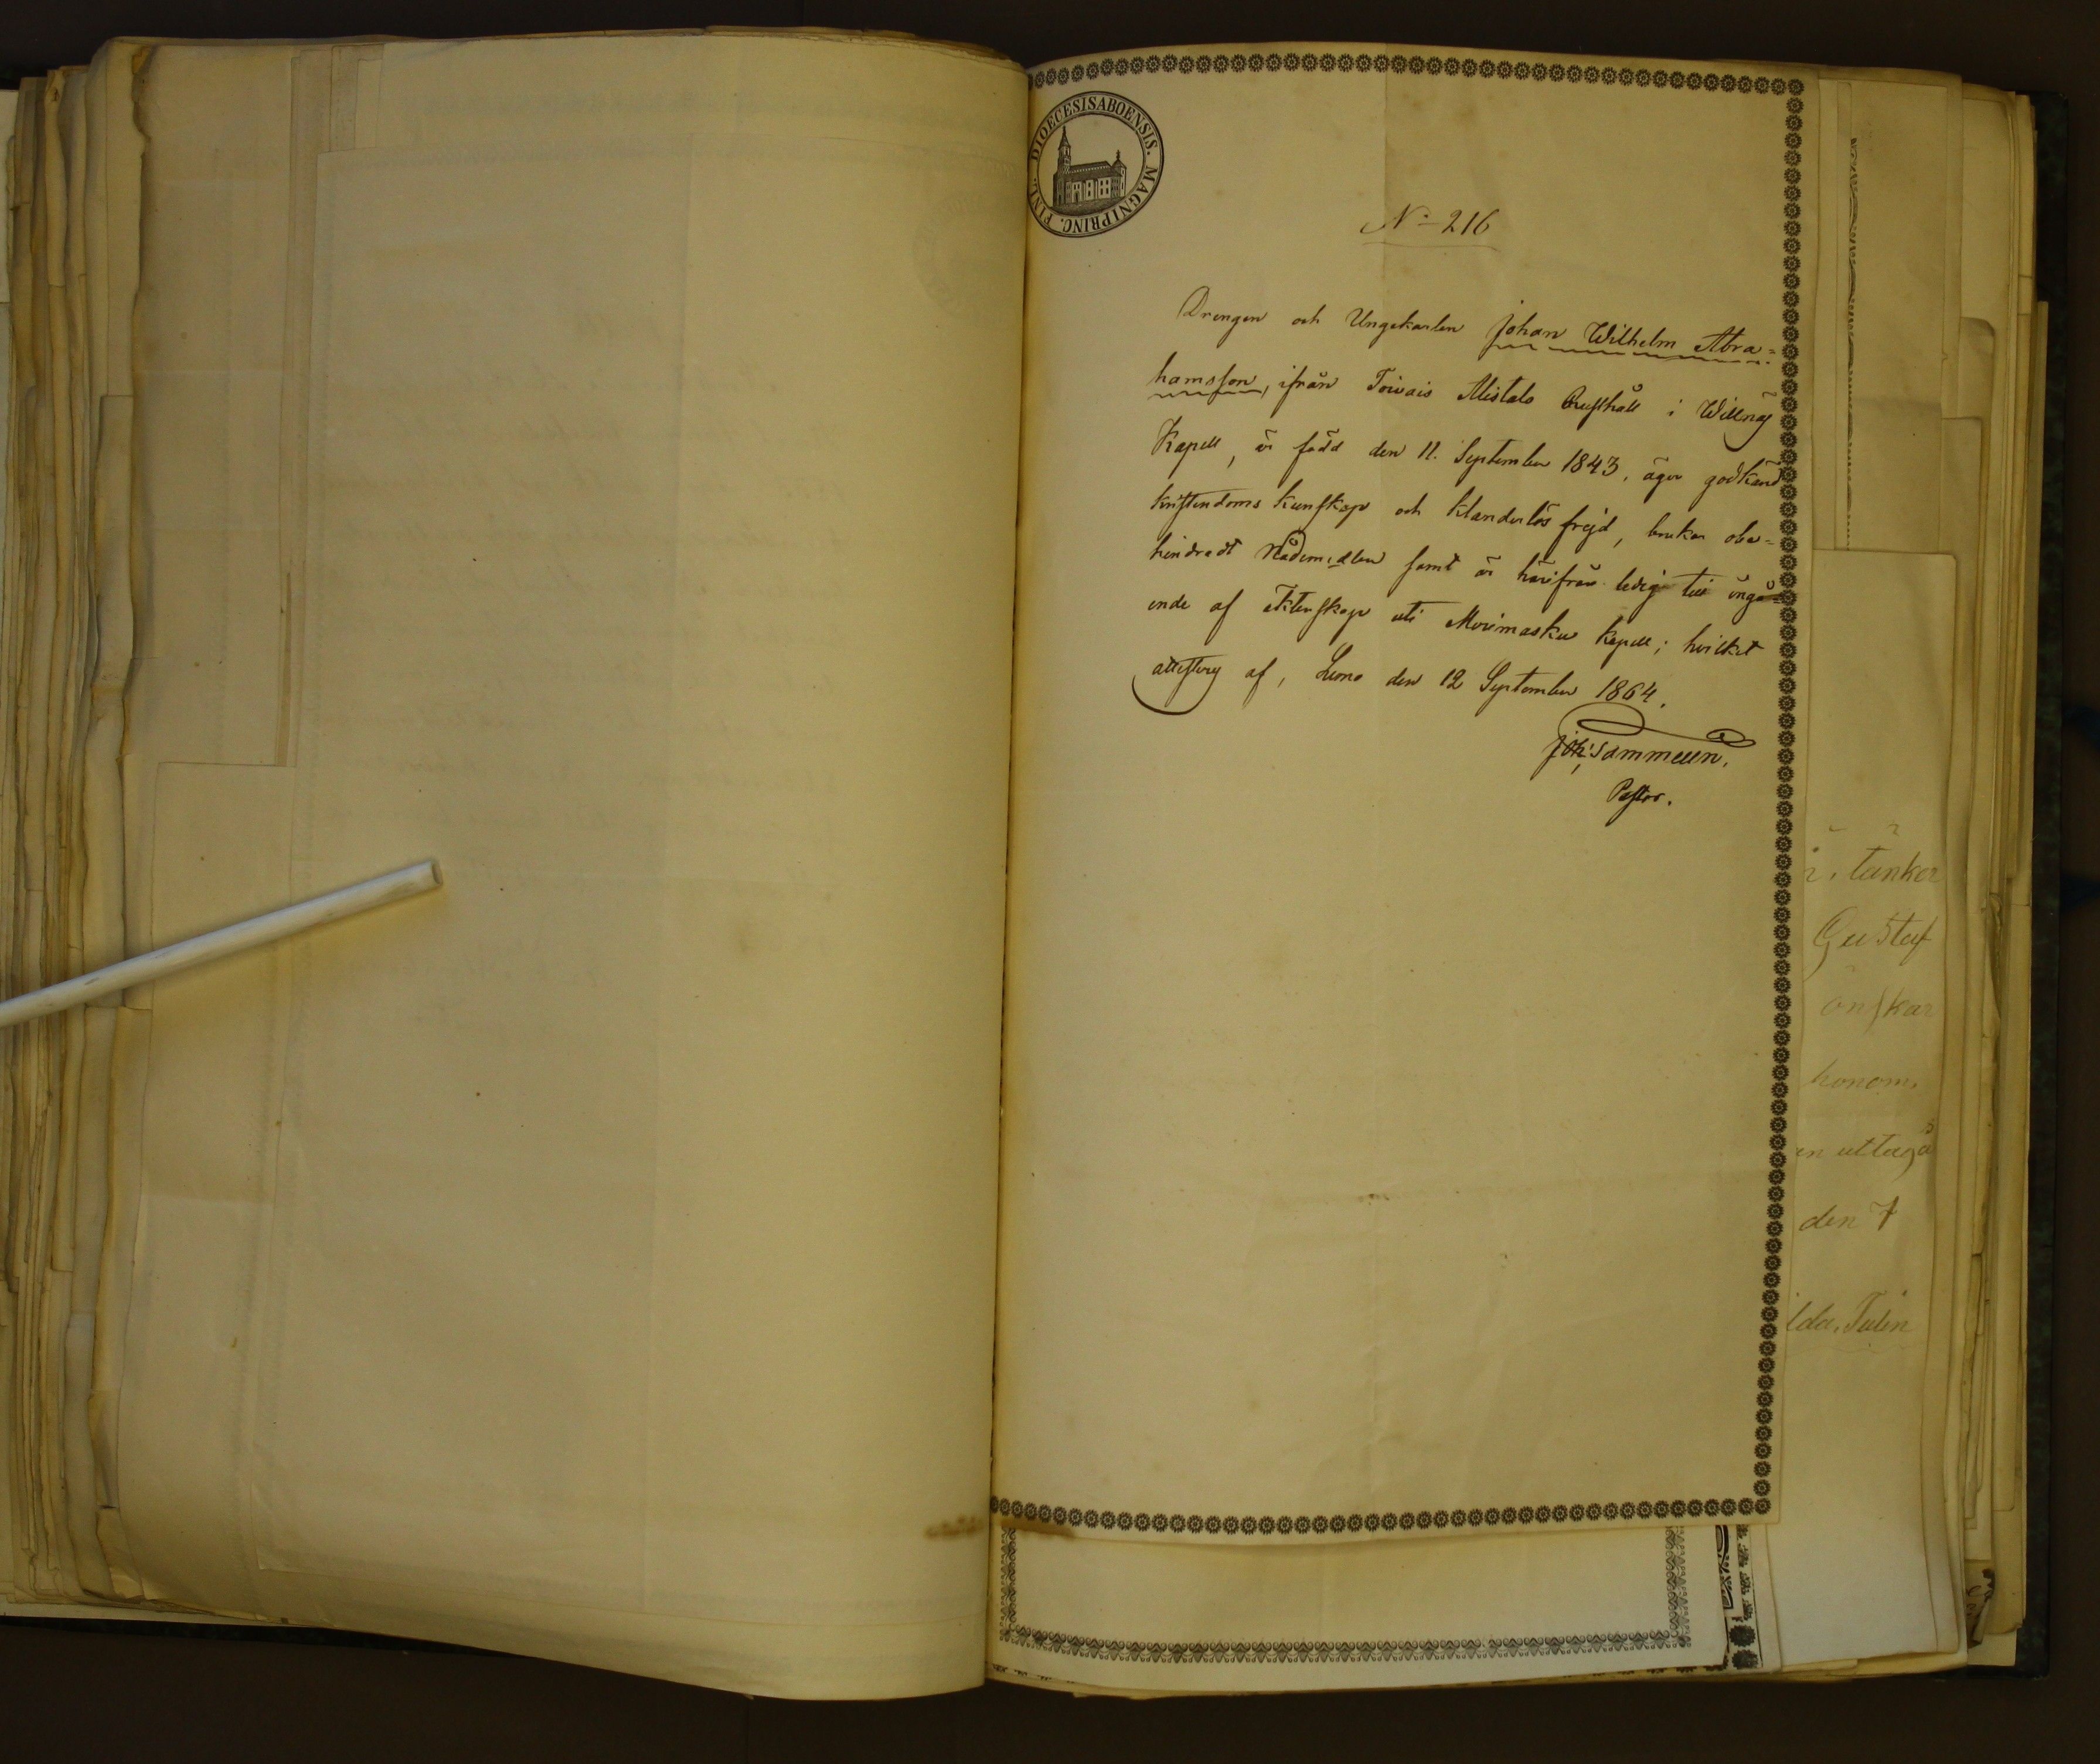 DIOECESIS ABOENSIS. MAGNI PRINC. FINL.
No 216
Drengen och Ungekarlen Johan Wilhelm Abra=
hamsson, ifrån Toivais Alistalo Rusthåll i Willnäs
Kapell, är född den 11. September 1843, äger godkänd
kristendoms kunskap och klanderlös frejd, brukar obe=
hindradt Nådemedlen samt är härifrån ledig till ingå=
ende af äktenskap uti Merimasku kapell; hvilket
attesterar af, Lemo den 12 September 1864.
Joh: Sammelin.
Pastor.
tänker
Gustaf
önskar
honom.
en uttaga
den 7
lda. Tulin